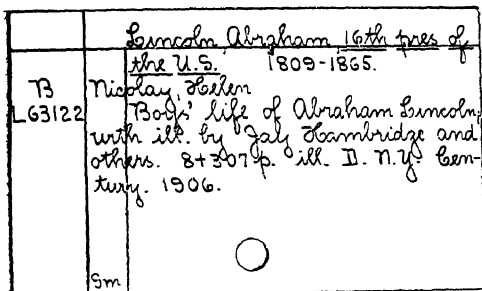 Lincoln, Abraham, 16th pres of
the U.S. 1809-1865.
B Nicolay, Helen
L63122 Boys' life of Abraham Lincoln,
with ill. by Jay Hambridge and
others. 8+307p. ill. D. N.Y. Cen-
tury. 1906.
Sm